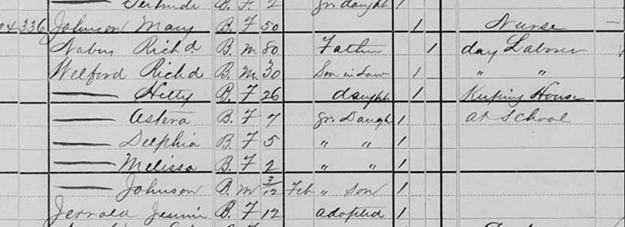 Gertrude B. F 2 gr. daught 1
336 Johnson Mary B. F 50 1 Nurse —
Nabus Rich'd B. M. 80 Father 1 day Laborer
Welford Rich'd B. M. 30 Son in Law 1 " "
—— Hetty B. F 26 daught 1 Keeping House
—— Astera B. F 7 gr. Daught 1 at School
—— Delphia B. F 5 " " 1
—— Melissa B. F 2 " " 1
—— Johnson B. M 3/12 Feb " Son 1
Jennie B. F 12 adopted 1